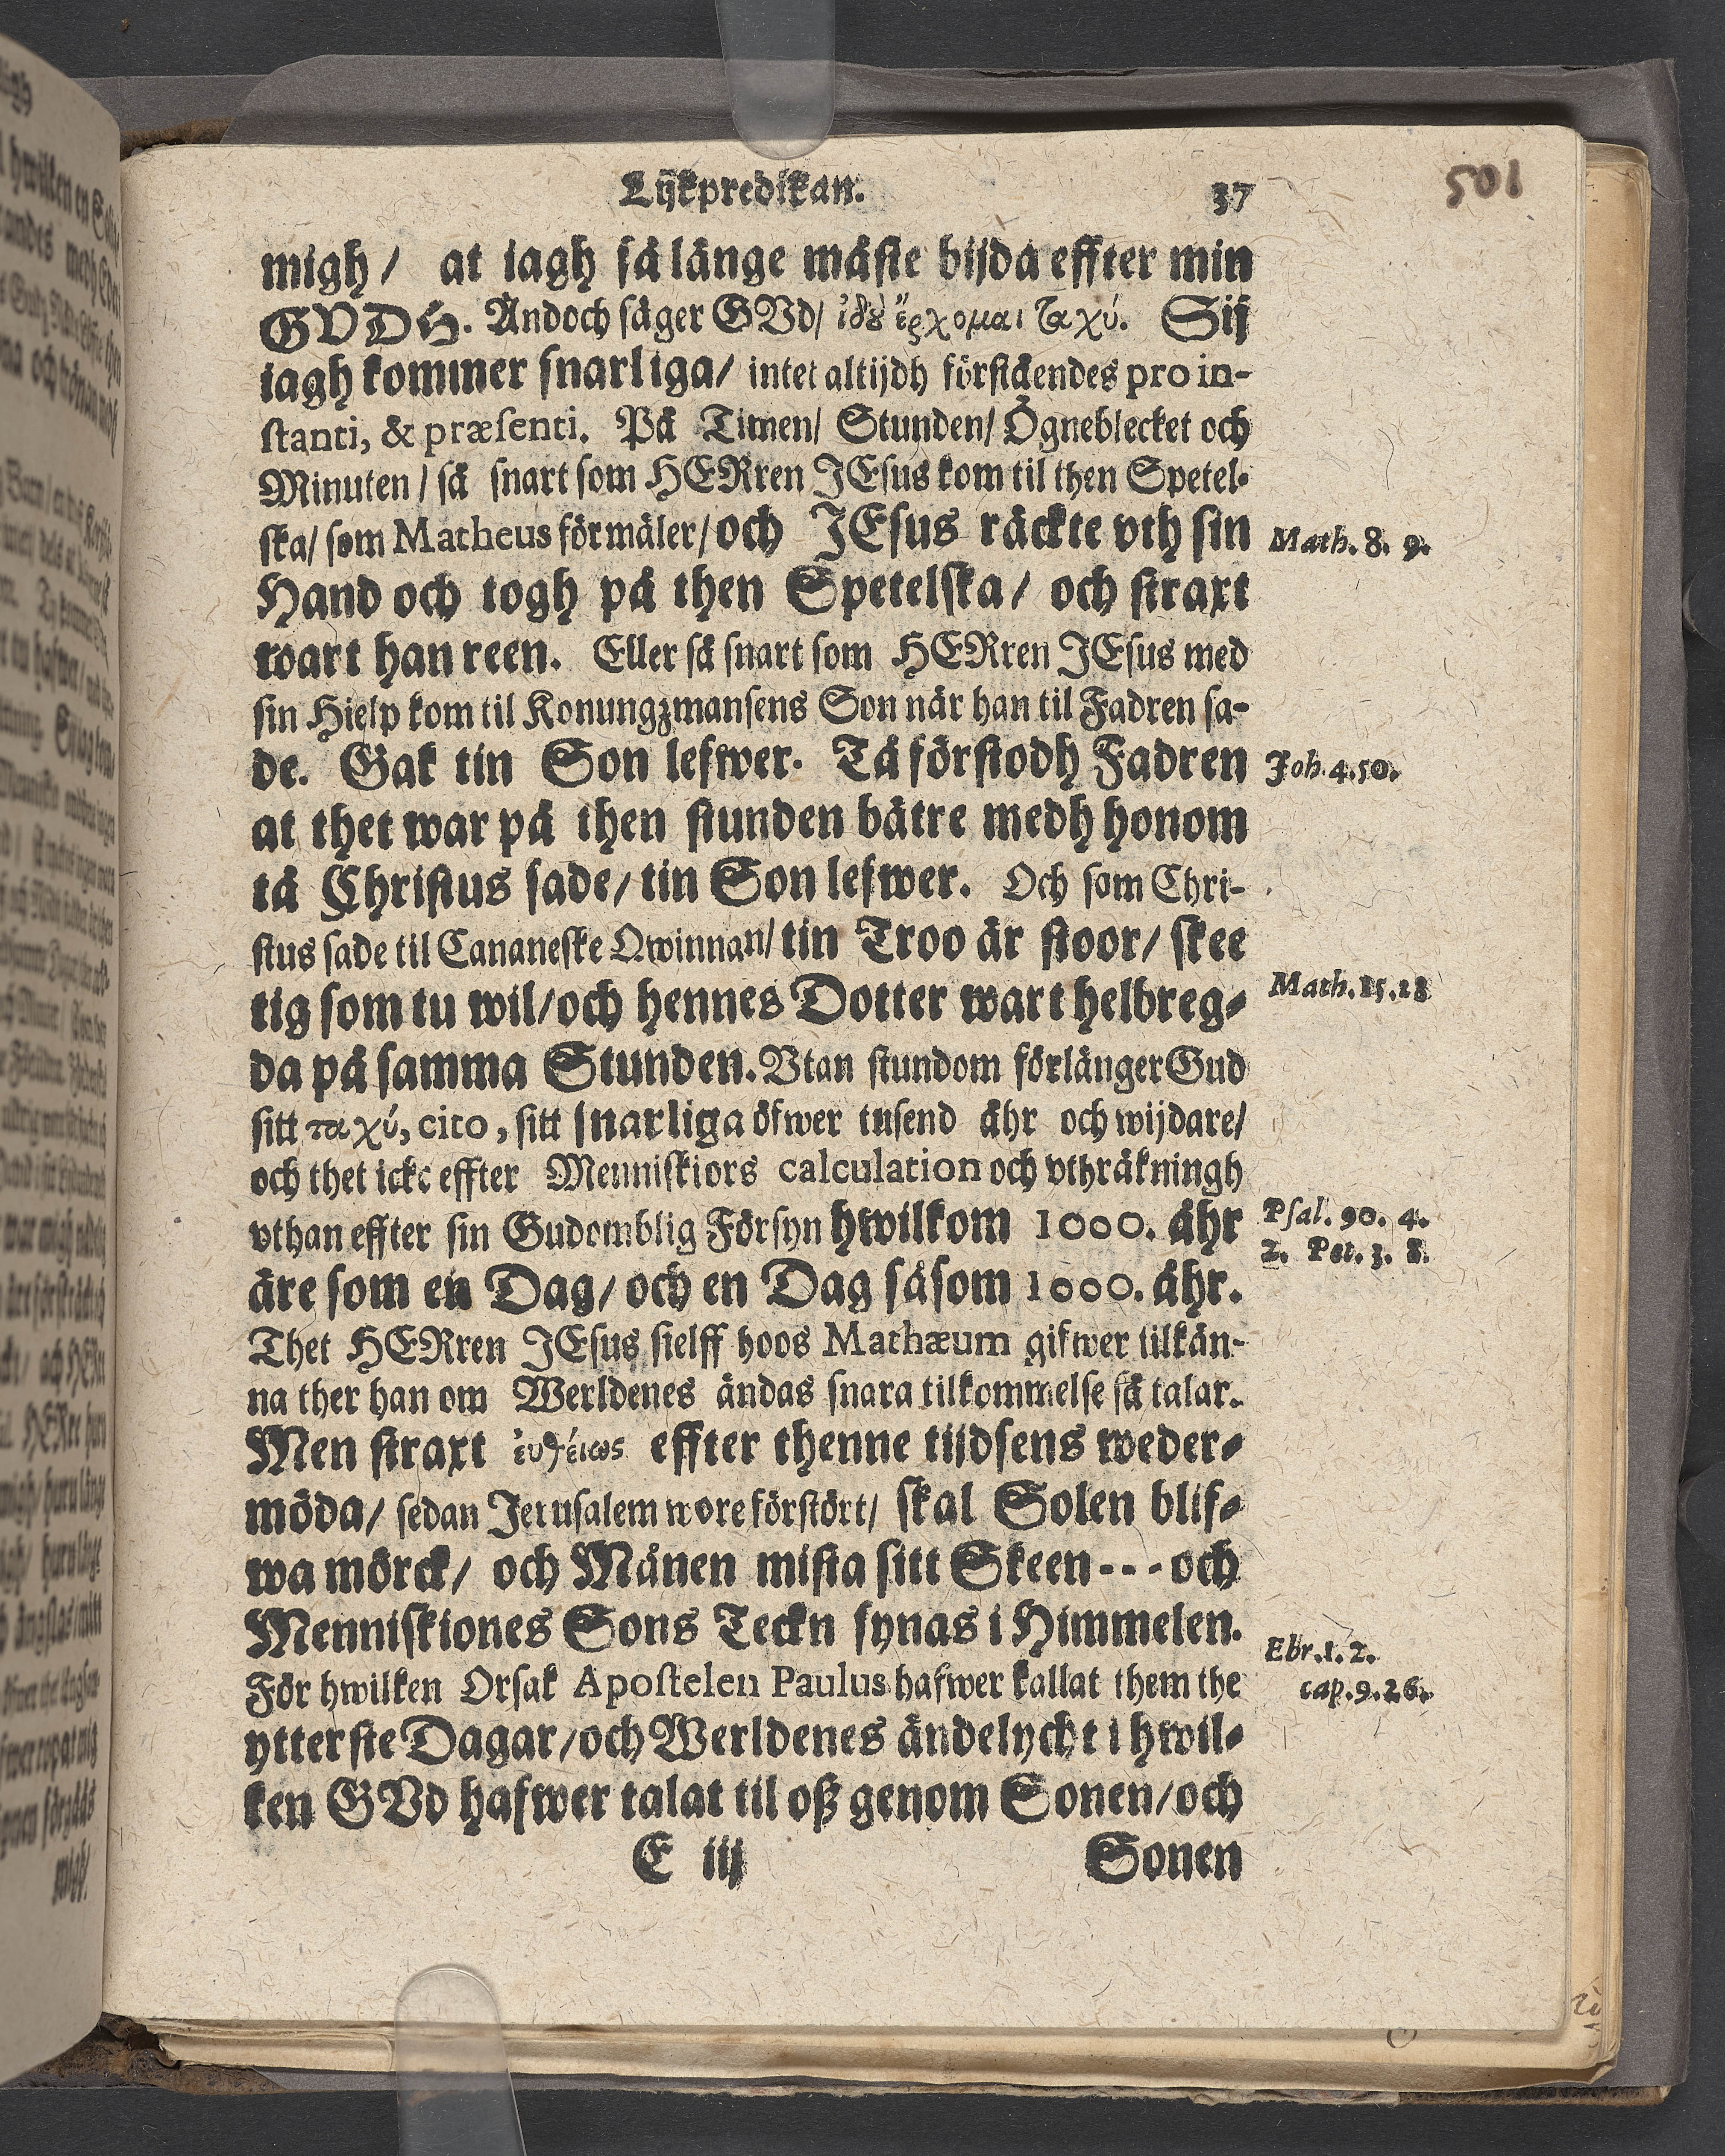 Lijkpredikan. 37
501
migh / at iagh så länge måste bijda effter min
GVDH. Ändoch säger GVd / ἰδοὺ ἔρχομαι ταχύ. Sij
iagh kommer snarliga / intet altijdh förståendes pro in-
stanti, & præsenti. På Timen / Stunden / Ögneblecket och
Minuten / så snart som HERren JEsus kom til then Spetel-
ska / som Matheus förmäler / och JEsus räckte vth sin
Math. 8. 9.
Hand och togh på then Spetelska / och straxt
wart han reen. Eller så snart som HERren JEsus med
sin Hielp kom til Konungzmansens Son när han til Fadren sa-
de. Gak tin Son lefwer. Tå förstodh Fadren
Joh. 4. 50.
at thet war på then stunden bätre medh honom
tå Christus sade / tin Son lefwer. Och som Chri-
stus sade til Cananeske Qwinnan / tin Troo är stoor / skee
tig som tu wil / och hennes Dotter wart helbreg-
Math. 15. 28
da på samma Stunden. Vtan stundom förlänger Gud
sitt ταχύ, cito, sitt snarliga öfwer tusend åhr och wijdare /
och thet icke effter Menniskiors calculation och vthräkningh
vthan effter sin Gudomblig Försyn hwilkom 1000. åhr
Psal. 90. 4.
2. Pet. 3. 8.
äre som en Dag / och en Dag såsom 1000. åhr.
Thet HERren JEsus sielff hoos Mathæum gifwer tilkän-
na ther han om Werldenes ändas snara tilkommelse så talar.
Men straxt ἐυθέως effter thenne tijdsens weder-
möda / sedan Jerusalem wore förstört / skal Solen blif-
wa mörck / och Månen mista sitt Skeen - - - och
Menniskiones Sons Teckn synas i Himmelen.
Ebr. 1. 2.
För hwilken Orsak Apostelen Paulus hafwer kallat them the
cap. 9. 26.
ytterste Dagar / och Werldenes ändelycht i hwil-
ken GVd hafwer talat til oß genom Sonen / och
E iij Sonen